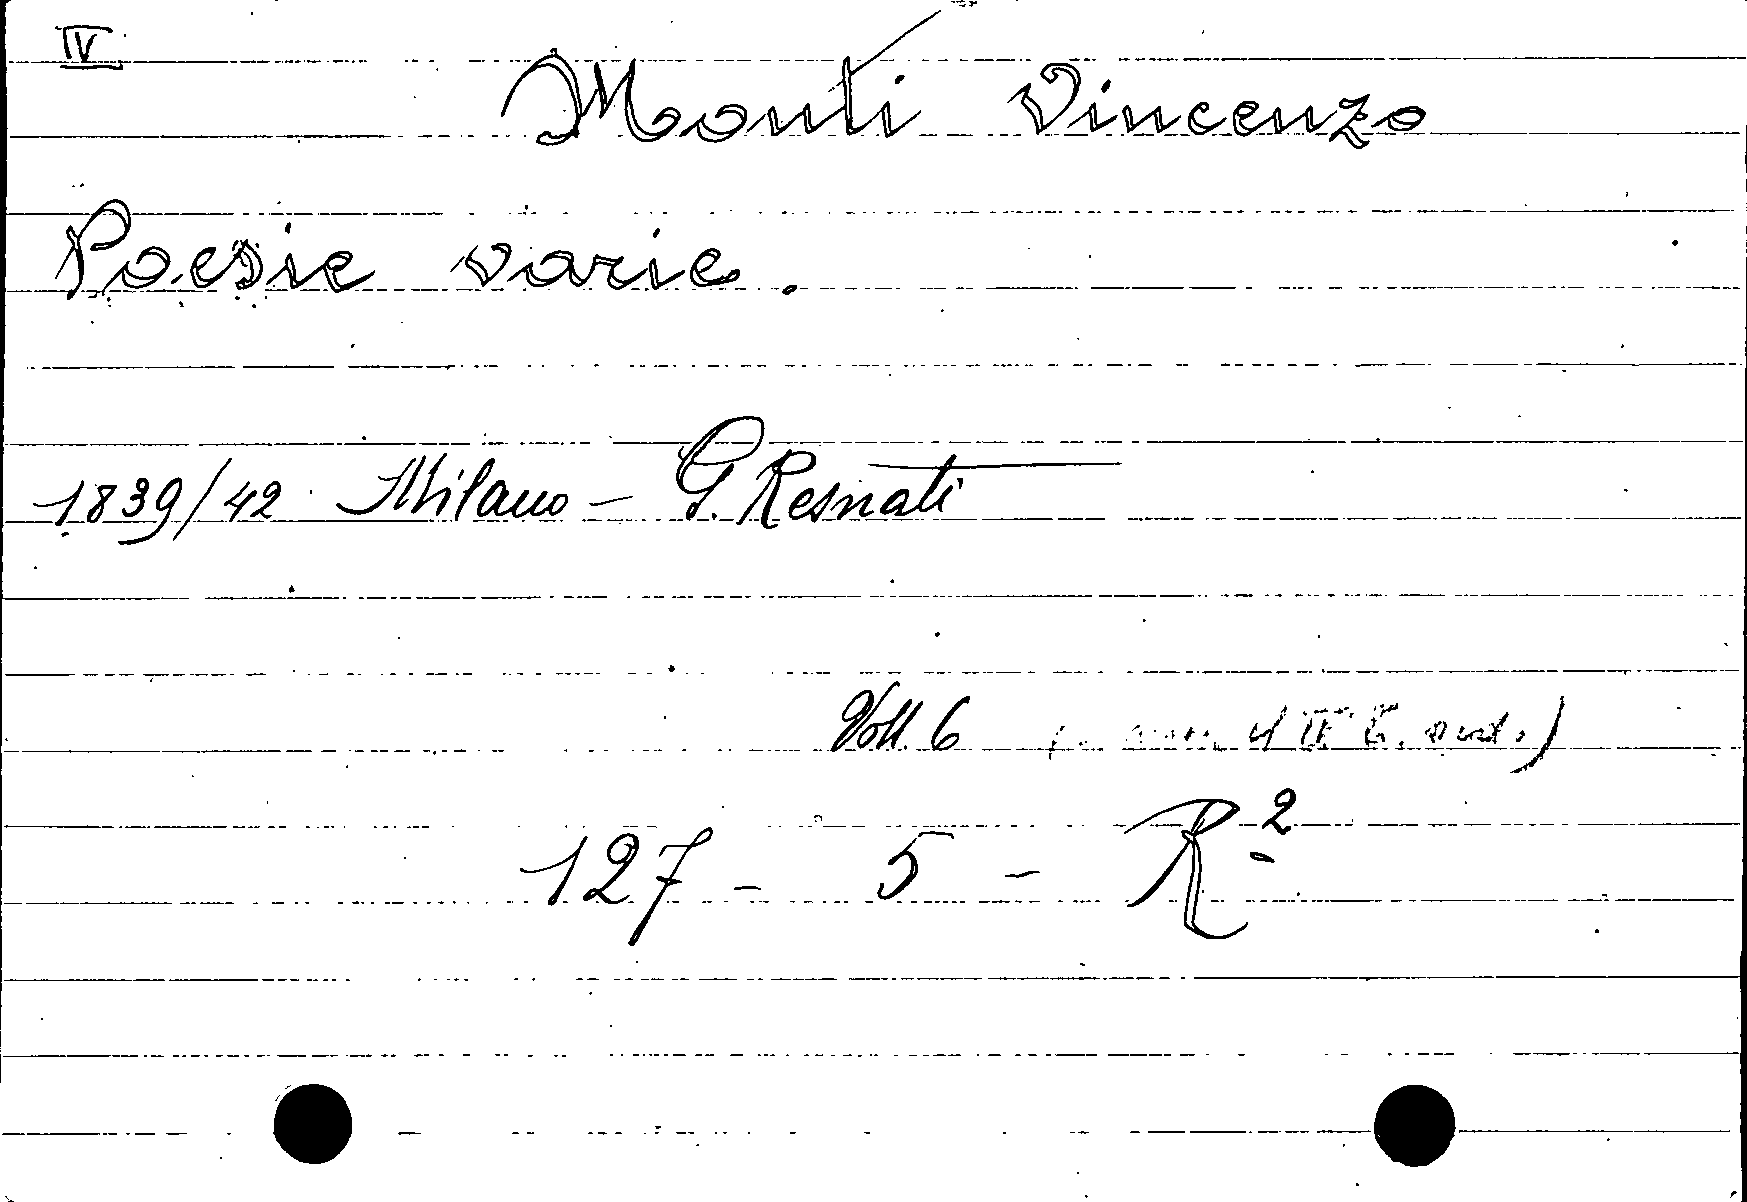 IV
Monti Vincenzo
Poesie varie.
1839/42 Milano - G. Resnati
Voll. 6
127 - 5 - R.²